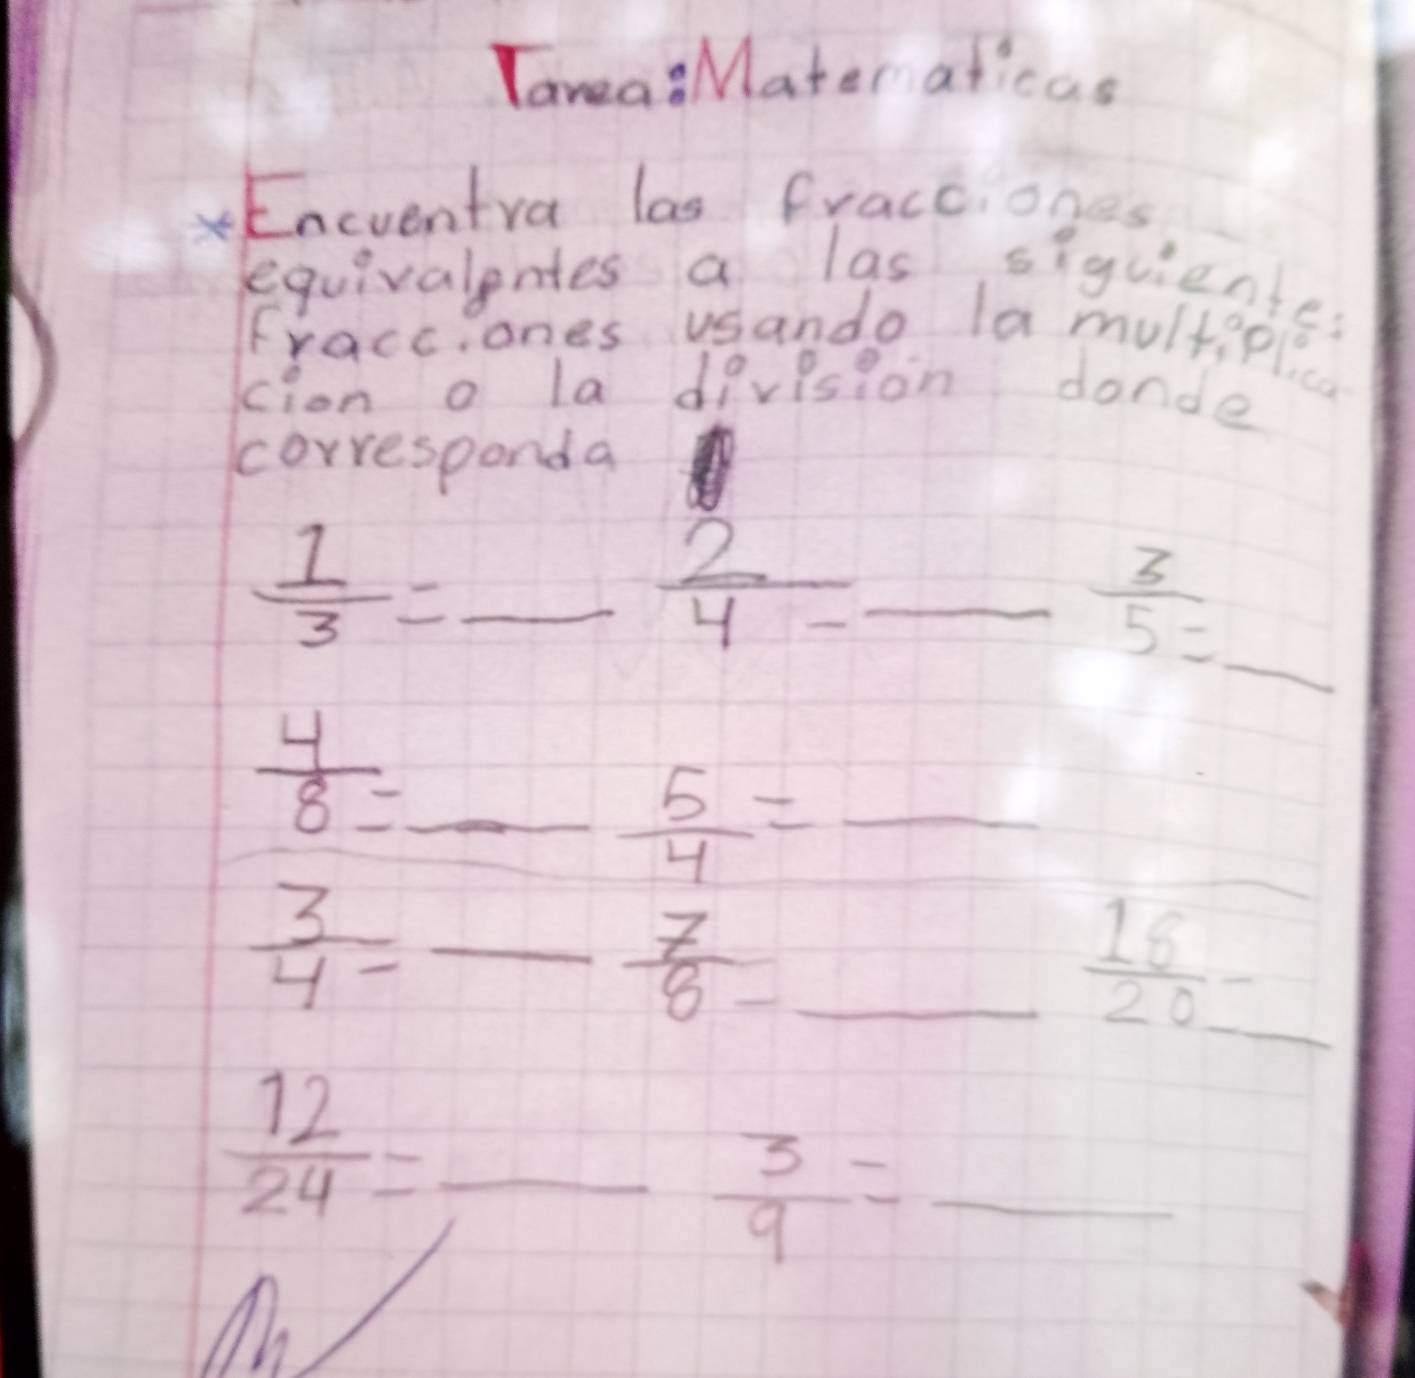 Tarea: Matematicas
*Encuentra las fracciones
equivalentes a las siguientes
fracciones usando la multiplica
cion o la división donde
corresponda
1/3 = ___ 2/4 = ___ 3/5 = ___
4/8 = ___ 5/4 = ___
3/4 = ___ 7/8 = ___ 18/20 = ___
12/24 = ___ 3/9 = ___